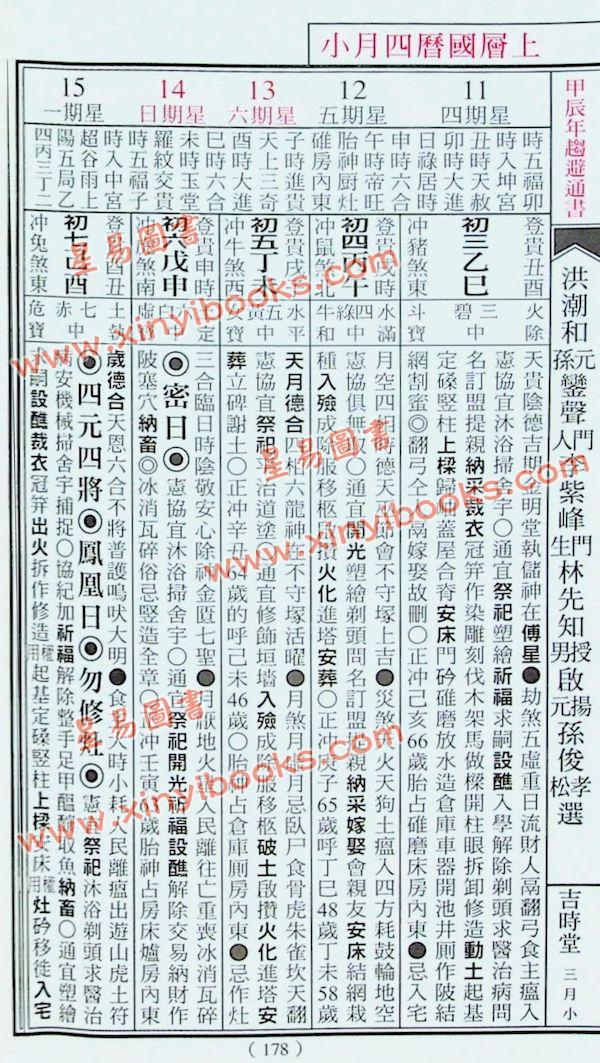 上層國曆四月小
甲辰年趨避通書
洪潮和
元孫鑾聲
門人李紫峰
門生林先知
男啟揚
元孫俊孝
松
授
選
吉時堂
三月小
11
星期四
時五福卯
時入坤宮
丑時天赦
卯時大進
日祿居時
申時六合
登貴丑酉
初三乙巳
冲豬煞東
火除
三碧中
斗寶
天貴陰德吉期金明堂執儲神在傅星●劫煞五虛重日流財人鬲翻弓食主瘟入
憲協宜沐浴掃舍宇○通宜祭祀塑繪祈福求嗣設醮入學解除剃頭求醫治病問
名訂盟提親納采裁衣冠笄作染雕刻伐木架馬做樑開柱眼拆卸修造動土起基
定磉竪柱上樑歸岫蓋屋合脊安床門砱碓磨放水造倉庫車器開池井厠作陂結
網割蜜◎翻弓全同鬲嫁娶故刪○正冲己亥66歲胎占碓磨床房內東●忌入宅
12
星期五
午時帝旺
胎神厨灶
碓房內東
登貴戌時
初四丙午
冲鼠煞北
水滿
四綠中
牛和
月空四相時德天
節會不守塚上吉●災煞天火天狗土瘟入四方耗鼓輪地空
憲協俱無取○通宜開光塑繪剃頭問名訂盟提親納采嫁娶會親友安床結網栽
種入殮成除服移柩
火化進塔安葬○正冲庚子65歲呼丁巳48歲丁未58歲
13
星期六
子時進貴
天上三奇
酉時大進
登貴戌
初五丁未
冲牛煞西
水平
五黃中
女寶
天月德合四相六龍神在不守塚活曜●月煞月虛歲月忌臥尸食骨虎朱雀坎天翻
憲協宜祭祀平治道塗○通宜修飾垣墻入殮成除服移柩破土啟攢火化進塔安
葬立碑謝土○正冲辛丑64歲的呼己未46歲○胎占倉庫厠房內東●忌作灶
14
星期日
巳時六合
未時玉堂
羅紋交貴
時五福子
登貴申時
初六戊申
冲虎煞南
定
虛寶
三合臨日時陰敬安心除神金匱七聖●月厭地火雀人民離往亡重喪冰消瓦碎
◉密日◉憲協宜沐浴掃舍宇○通宜祭祀開光祈福設醮解除交易納財作
陂塞穴納畜◎冰消瓦碎俗忌竪造全章○正冲壬寅63歲胎神占房床爐房內東
15
星期一
時入中宮
超谷雨上
陽五局乙
四丙三丁二
登貴酉丑
初七己酉
冲兔煞東
土執
七赤中
危寶
歲德合天恩六合不將普護鳴吠大明●食月大時小耗人民離瘟出遊山虎土符
◉四元四將◉鳳凰日◉勿修灶◉憲
祭祀沐浴剃頭求醫治
安機械掃舍宇捕捉○協紀加祈福解除整手足甲醞釀取魚納畜○通宜塑繪
嗣設醮裁衣冠笄出火拆作修造
起基定磉竪柱上樑
床
灶砱移徙入宅
(178)
星易圖書
www.xinyibooks.com
星易圖書
www.xinyibooks.com
星易圖書
www.xinyibooks.com